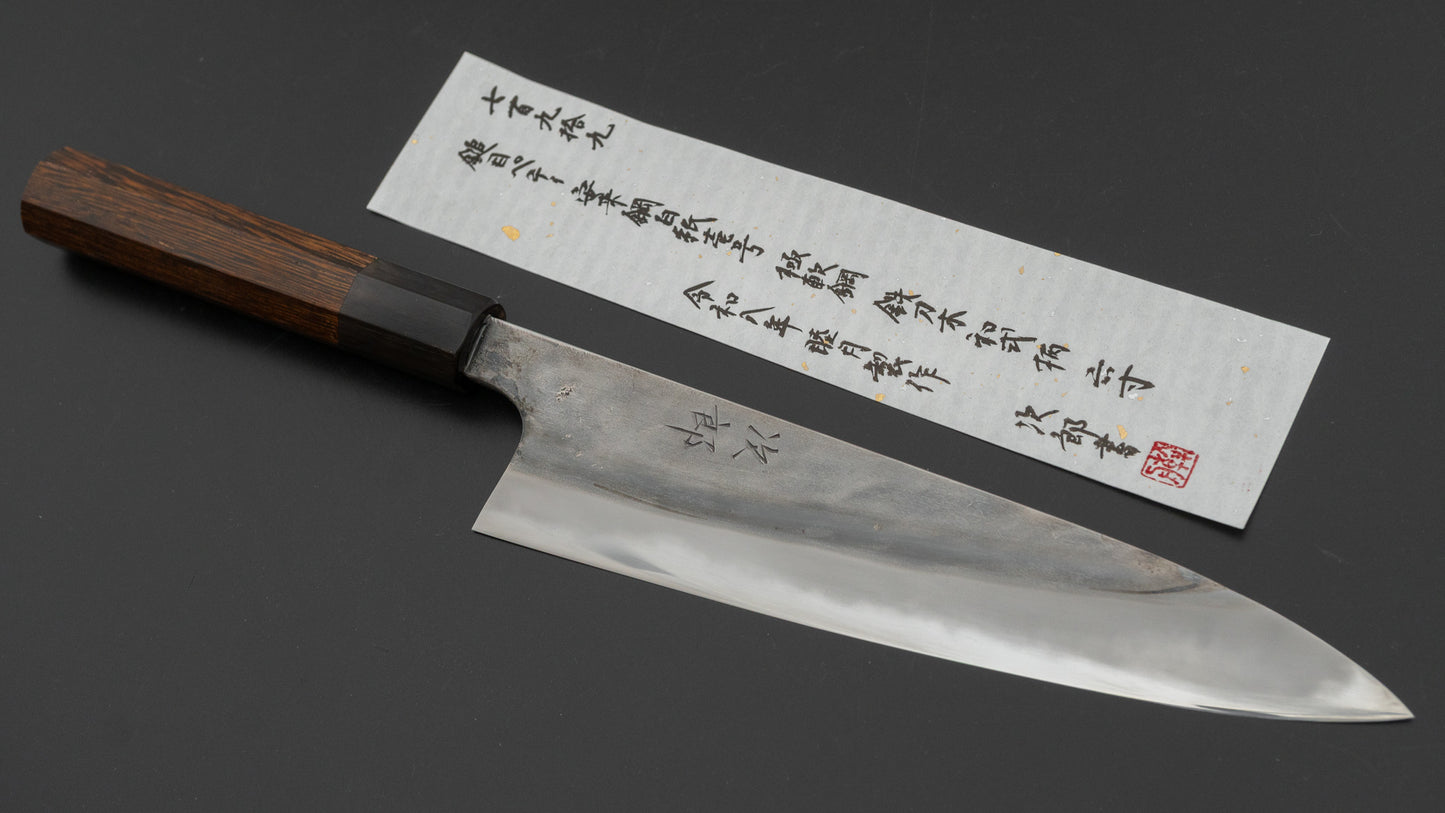 七百九拾九
鎚目ペティ 安来鋼白紙壱号 極軟鋼 鉄刀木初弐柄 六寸
令和八年睦月製作
次郎書
次郎